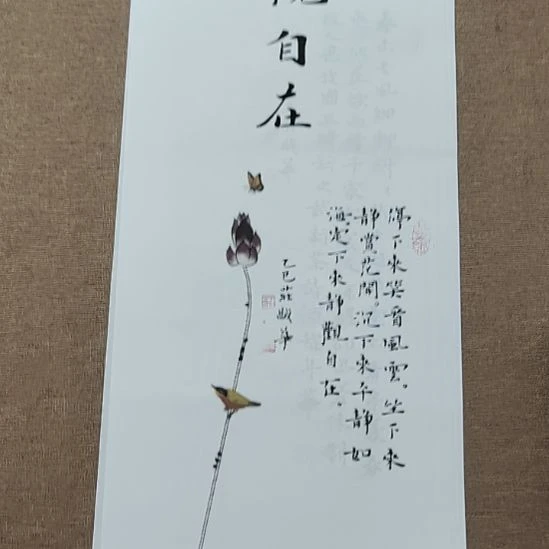 自在
停下來笑看風雲。坐下來
靜賞花開。沉下來平靜如
海。定下來靜觀自在。
乙巳莊華